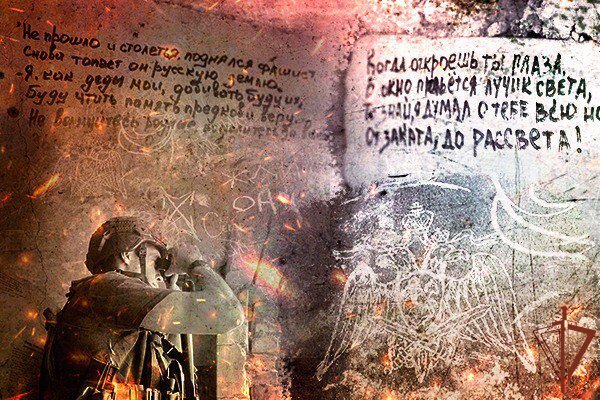 Не прошло и столется, поднялся фашист
Снова топчет он русскую землю.
-Я, как деды мои, добивать буду их,
Буду чтить память предков и верую
Когда откроешь ты глаза,
В окно польётся лучик света,
То знай, я думал о тебе всю но
От заката, до рассвета!